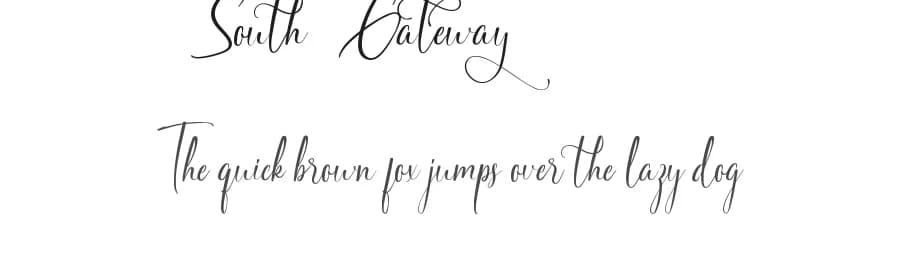 South Gateway
The quick brown fox jumps over the lazy dog